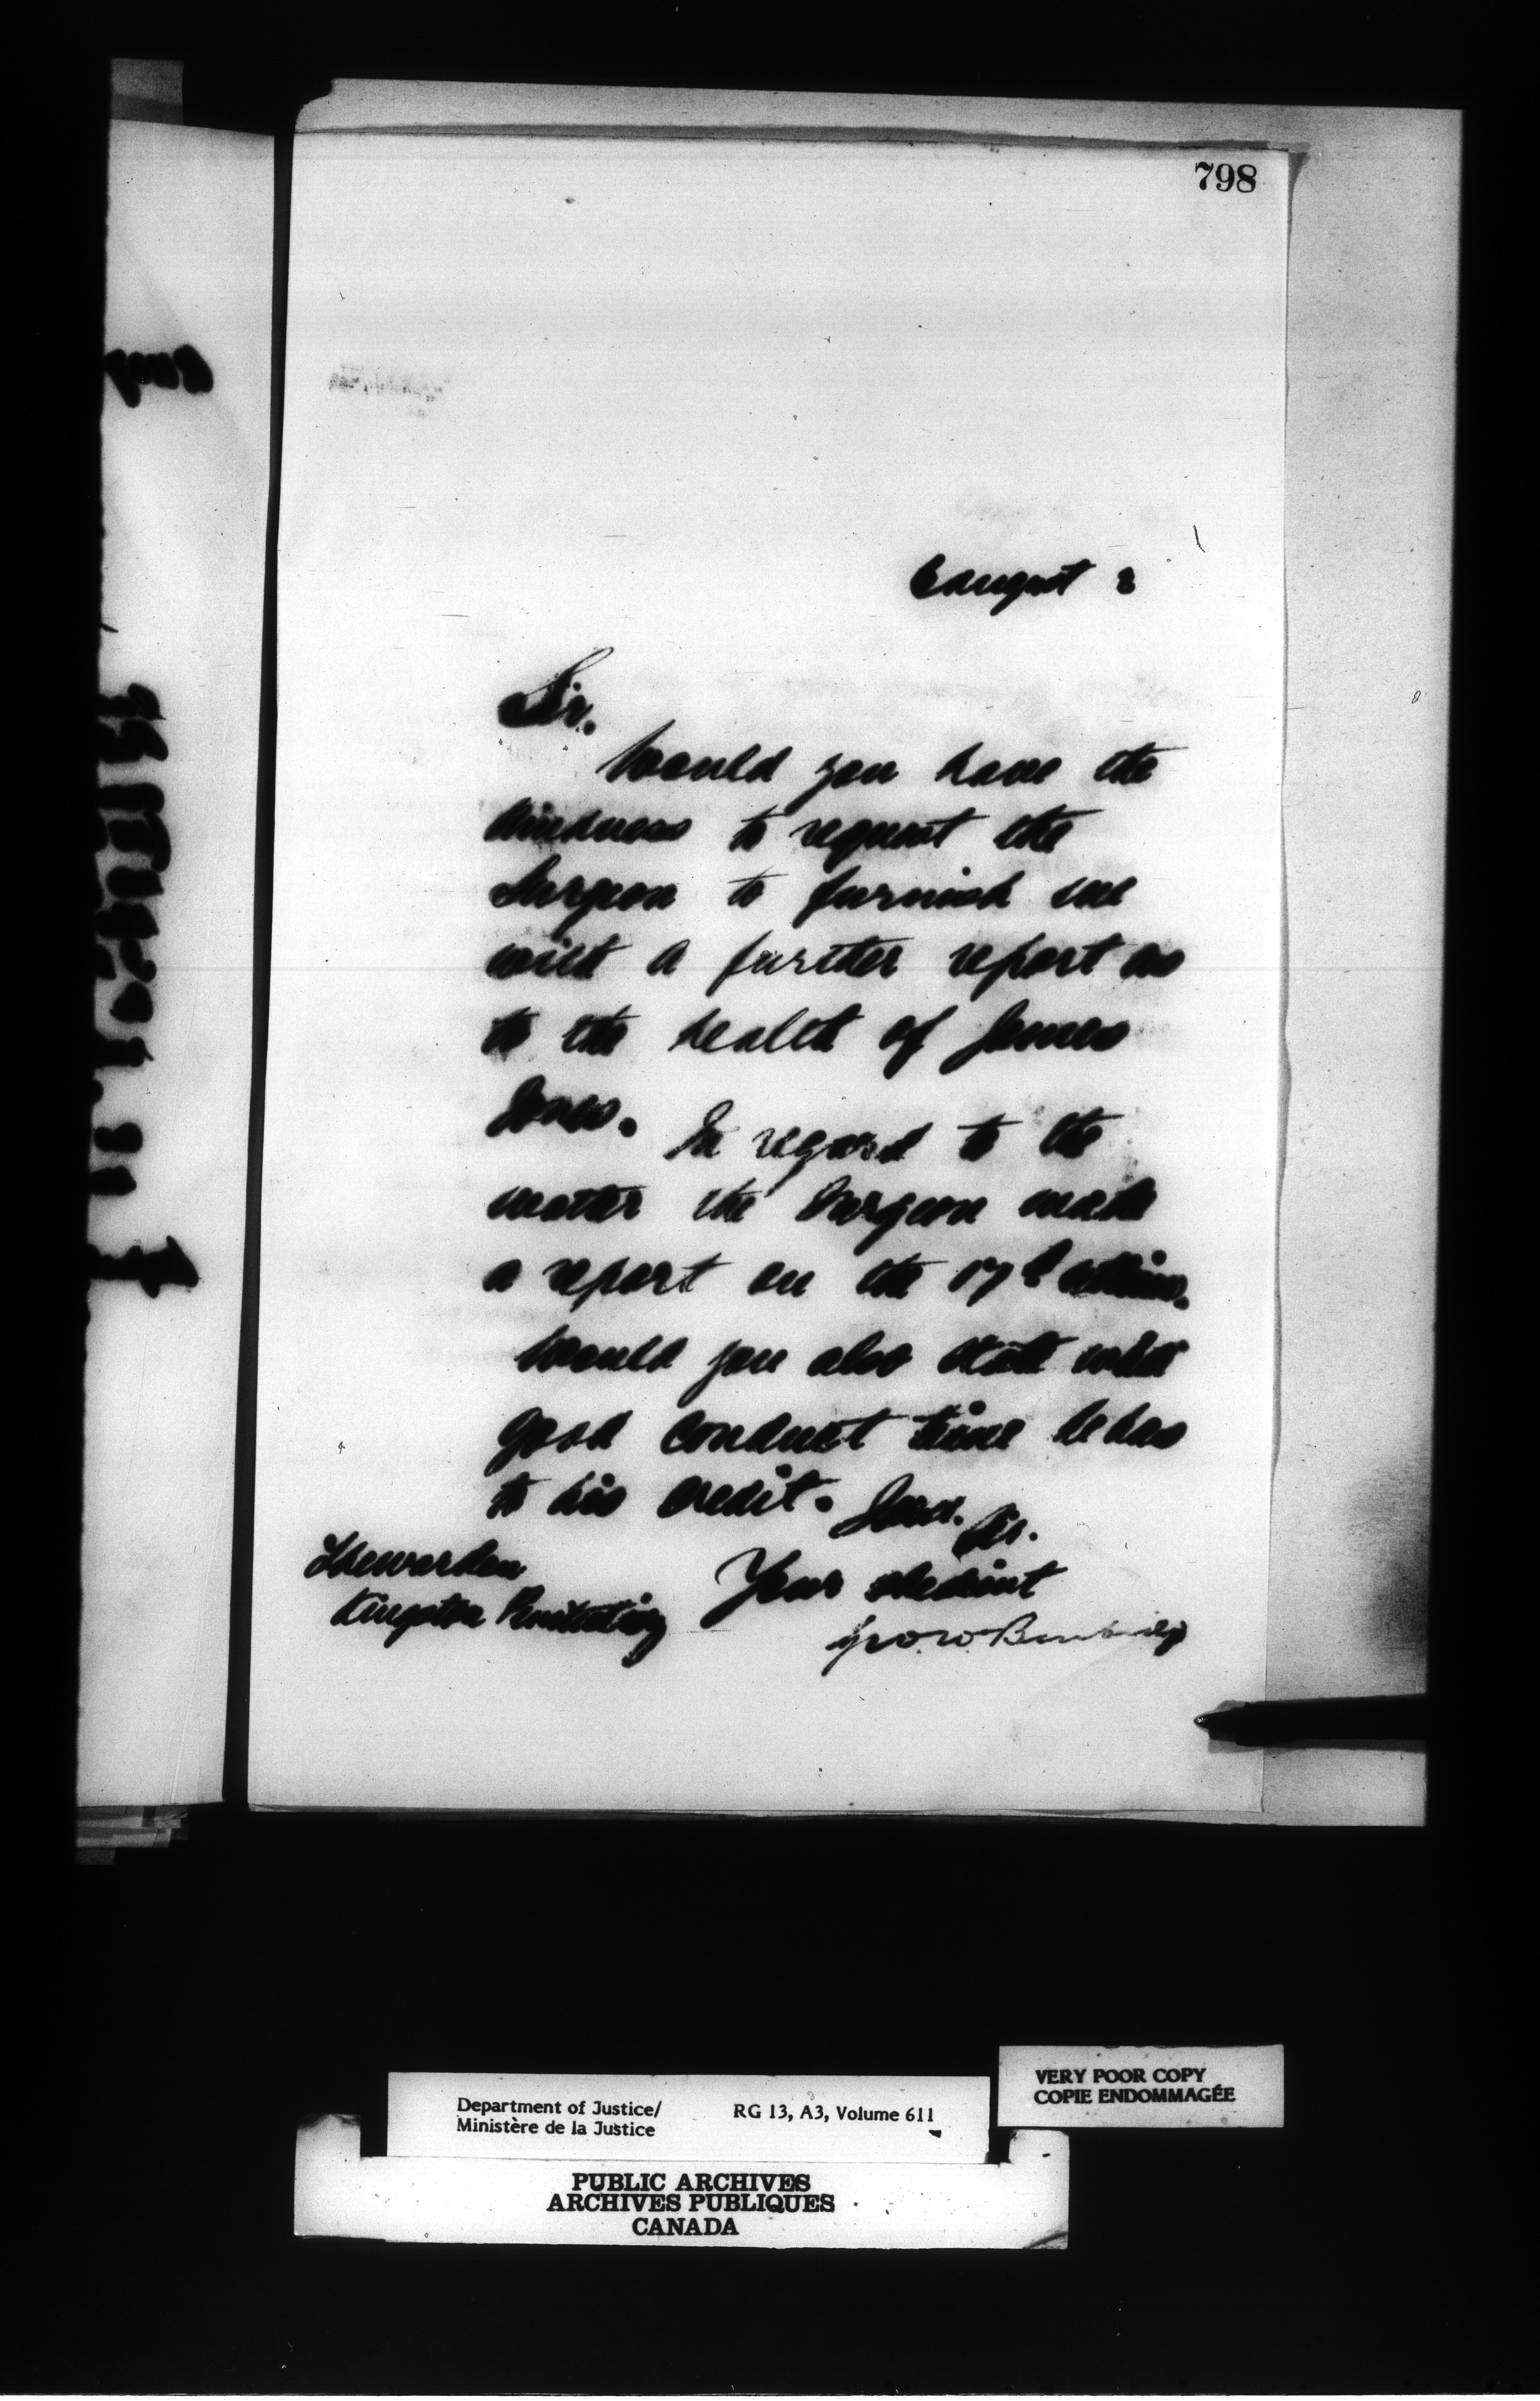 798
August 2
Sir.
Would you have the
kindness to request the
Surgeon to furnish me
with a further report as
to the health of James
Jones. In regard to the
matter the Surgeon made
a report on the 17th
Would you also state what
good conduct time he has
to his credit. I am. Sir.
Your obedient
Geo W Burbidge
The warden
Kingston Penitentiary
VERY POOR COPY
COPIE ENDOMMAGÉE
Department of Justice/ RG 13, A3, Volume 611
Ministère de la Justice
PUBLIC ARCHIVES
ARCHIVES PUBLIQUES
CANADA